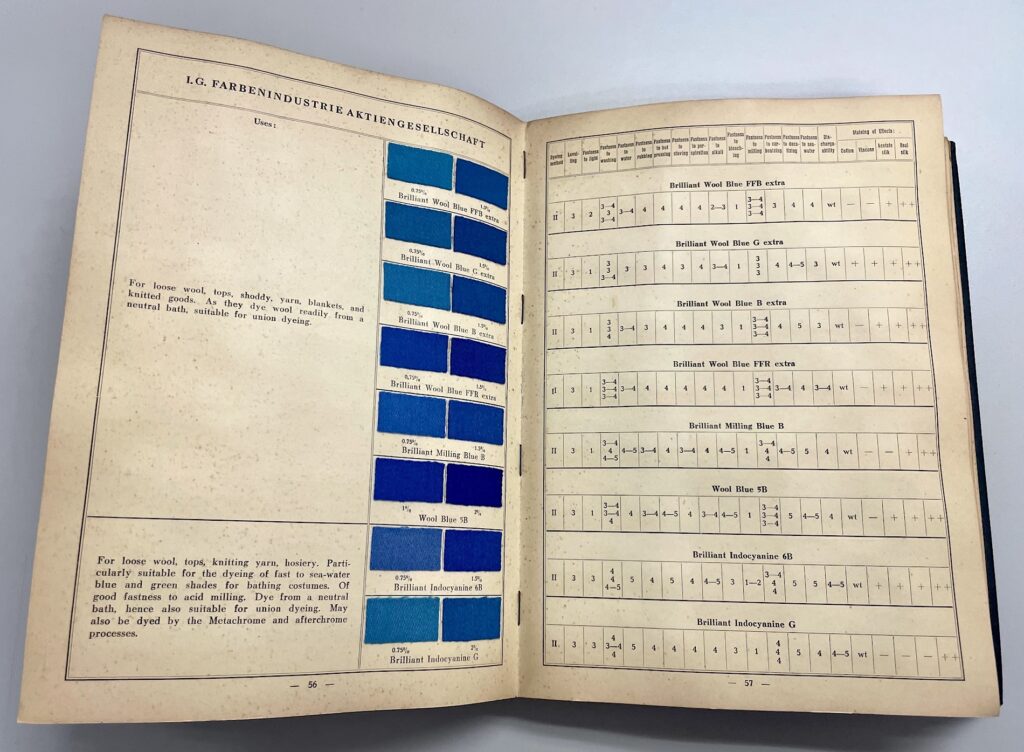 I.G. FARBENINDUSTRIE AKTIENGESELLSCHAFT
Uses:
For loose wool, tops, shoddy, yarn, blankets, and
knitted goods. As they dye wool readily from a
neutral bath, suitable for union dyeing.
For loose wool, tops, knitting yarn, hosiery. Parti-
cularly suitable for the dyeing of fast to sea-water
blue and green shades for bathing costumes. Of
good fastness to acid milling. Dye from a neutral
bath, hence also suitable for union dyeing. May
also be dyed by the Metachrome and afterchrome
processes.
0.75% 1.5%
Brilliant Wool Blue FFB extra
0.75% 1.5%
Brilliant Wool Blue G extra
0.75% 1.5%
Brilliant Wool Blue B extra
0.75% 1.5%
Brilliant Wool Blue FFR extra
0.75% 1.5%
Brilliant Milling Blue B
1% 2%
Wool Blue 5B
0.75% 1.5%
Brilliant Indocyanine 6B
0.75% 2%
Brilliant Indocyanine G
— 56 —
Dyeing method Levelling Fastness to light Fastness to washing Fastness to water Fastness to rubbing Fastness to hot pressing Fastness to stoving Fastness to perspiration Fastness to alkali Fastness to bleaching Fastness to milling Fastness to carbonizing Fastness to decatizing Fastness to sea-water Dischargeability Staining of Effects: Cotton Viscose Acetate silk Real silk
Brilliant Wool Blue FFB extra
II 3 2 3—4 3 3—4 3—4 4 4 4 4 2—3 1 3—4 3—4 3—4 3 4 4 wt — — + ++
Brilliant Wool Blue G extra
II 3 1 3 3 3—4 3 3 4 3 4 3—4 1 3 3 3 4 4—5 3 wt + + + ++
Brilliant Wool Blue B extra
II 3 1 3 3 4 3—4 3 4 4 4 3 1 3—4 3—4 3—4 4 5 3 wt — + + ++
Brilliant Wool Blue FFR extra
II 3 1 3—4 3—4 3—4 3—4 4 4 4 4 4 1 3—4 3—4 3—4 3—4 4 3—4 wt — + + ++
Brilliant Milling Blue B
II 3 1 3—4 4 4—5 4—5 3—4 4 3—4 4 4—5 1 3—4 4 4 4—5 5 4 wt — — + ++
Wool Blue 5B
II 3 1 3—4 3—4 4 4 3—4 4—5 4 3—4 4—5 1 3—4 3—4 3—4 5 4—5 4 wt — + + ++
Brilliant Indocyanine 6B
II 3 3 4 4 4—5 5 4 5 4 4—5 3 1—2 3—4 4 4 5 5 4—5 wt + + + ++
Brilliant Indocyanine G
II 3 3 4 3—4 4 5 4 4 4 4 3 1 4 4 4 5 4 4—5 wt — — — ++
— 57 —